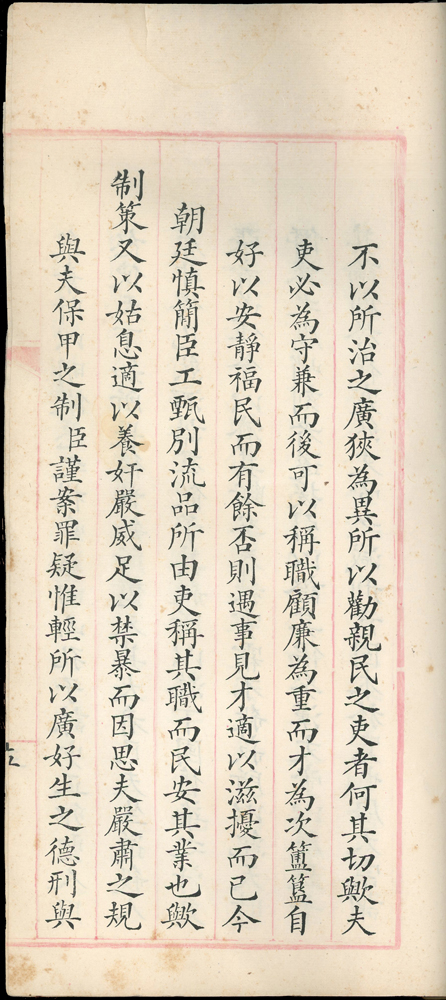 不以所治之廣狹為異所以勸親民之吏者何其切歟夫
吏必為守兼而後可以稱職顧廉為重而才為次簠簋自
好以安靜福民而有餘否則遇事見才適以滋擾而已今
朝廷慎簡臣工甄別流品所由吏稱其職而民安其業也歟
制策又以姑息適以養奸嚴威足以禁暴而因思夫嚴肅之規
與夫保甲之制臣謹案罪疑惟輕所以廣好生之德刑與